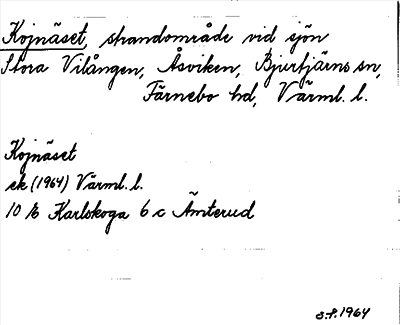 Kojnäset, strandområde vid sjön
Stora Vilången, Åsviken, Bjurtjärns sn,
Färnebo hd, Värml. l.
Kojnäset
ek (1964) Värml. l.
10 E Karlskoga 6 c Ämterud
S.F. 1964